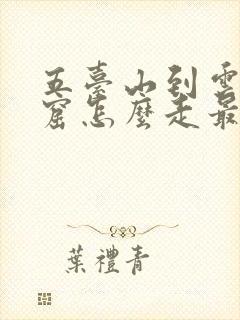 五臺山到雲
窟怎麼走最
葉禮青